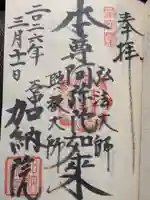 奉拝
弘法大師
本尊阿弥陀如来
興教大師
二〇二六年
三月十一日
加納院